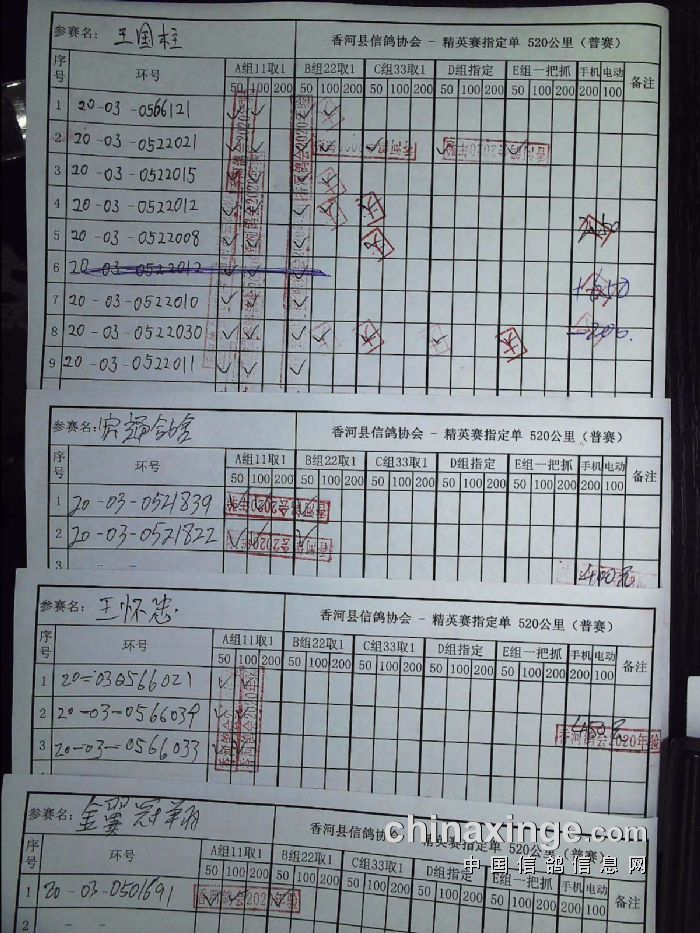 参赛名: 王国柱 香河县信鸽协会 - 精英赛指定单 520公里（普赛）
序号 环号 A组11取1 B组22取1 C组33取1 D组指定 E组一把抓 手机 电动 备注
50 100 200 50 100 200 50 100 200 50 100 200 50 100 200 200 100
1 20-03-0566121
2 20-03-0522021
3 20-03-0522015
4 20-03-0522012
5 20-03-0522008
6 20-03-0522012
7 20-03-0522010
8 20-03-0522030
9 20-03-0522011
参赛名: 香河县信鸽协会 - 精英赛指定单 520公里（普赛）
序号 环号 A组11取1 B组22取1 C组33取1 D组指定 E组一把抓 手机 电动 备注
50 100 200 50 100 200 50 100 200 50 100 200 50 100 200 200 100
1 20-03-0521839
2 20-03-0521822
3
参赛名: 王怀忠 香河县信鸽协会 - 精英赛指定单 520公里（普赛）
序号 环号 A组11取1 B组22取1 C组33取1 D组指定 E组一把抓 手机 电动 备注
50 100 200 50 100 200 50 100 200 50 100 200 50 100 200 200 100
1 20-03-0566021
2 20-03-0566034
3 20-03-0566033
香河鸽会2020年验
4
参赛名: 金翼冠翔 香河县信鸽协会 - 精英赛指定单 520公里（普赛）
chinaxinge.com
中国信鸽信息网
序号 环号 A组11取1 B组22取1 C组33取1 D组指定 E组一把抓 手机 电动 备注
50 100 200 50 100 200 50 100 200 50 100 200 50 100 200 200 100
1 20-03-0501691
2 - -